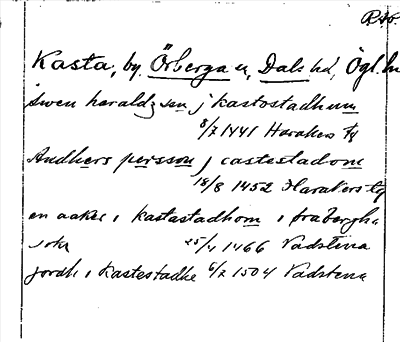 RAp.
Kasta, by. Örberga sn, Dals hd, Ögl. ln
swen haraldzson j kastostadhum
8/7 1441 Harakers tg
Andhers persson j castestadom
18/8 1452 Harakers tg
en aaker i kastastadhom i ørabergha
sokn 25/4 1466 Vadstena
jordh i kastestadhe 6/2 1504 Vadstena